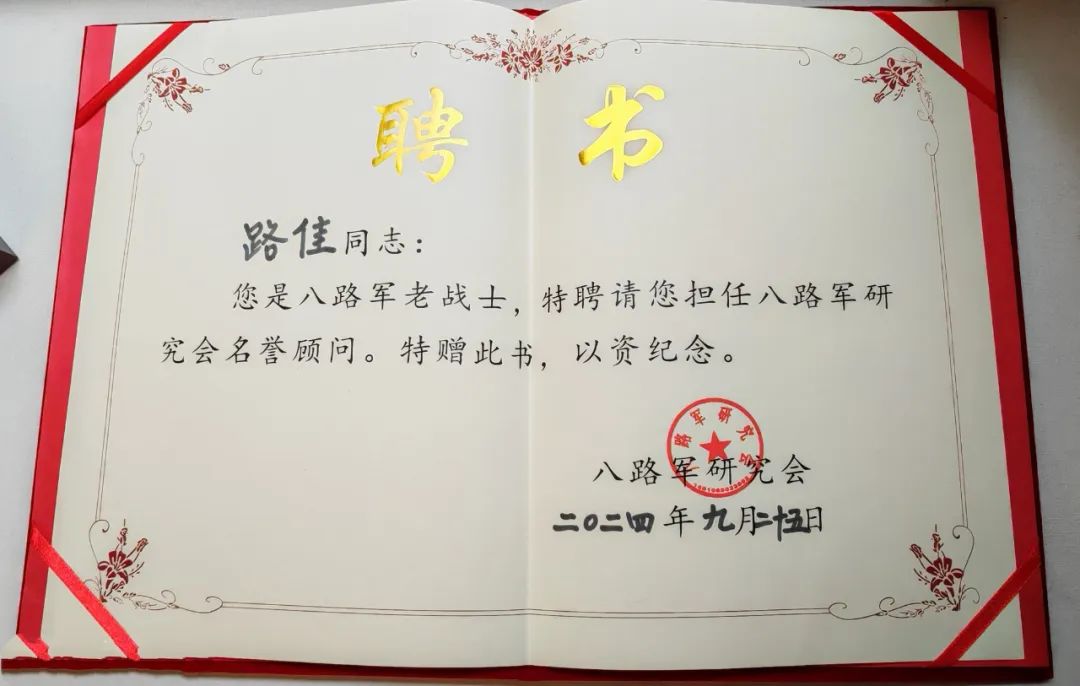 聘书
路佳同志：
您是八路军老战士，特聘请您担任八路军研
究会名誉顾问。特赠此书，以资纪念。
八路军研究会
八路军研究会
二〇二四年九月二十五日